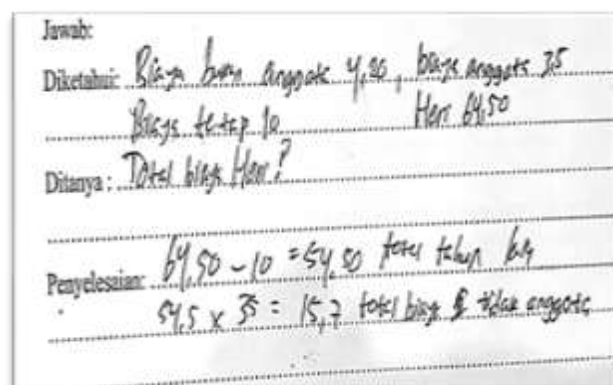 Jawab:
Diketahui: Biaya bukan anggota 4,20, biaya anggota 3,5
Biaya tetap 10 Heri 64,50
Ditanya: Total biaya Heri?
Penyelesaian: 64,50 - 10 = 54,50 total tahun
54,5 x 35 = 15,7 total biaya tidak anggota